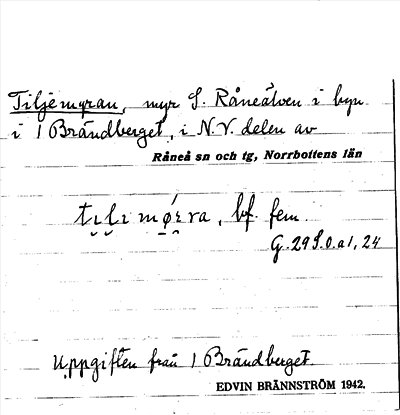 Tiljemyran, myr S. Råneälven i byn
i 1 Brändberget, i N.V. delen av
Råneå sn och tg, Norrbottens län
bf. fem
G. 29 S.O. a1, 24
Uppgiften från 1 Brändberget.
EDVIN BRÄNNSTRÖM 1942.